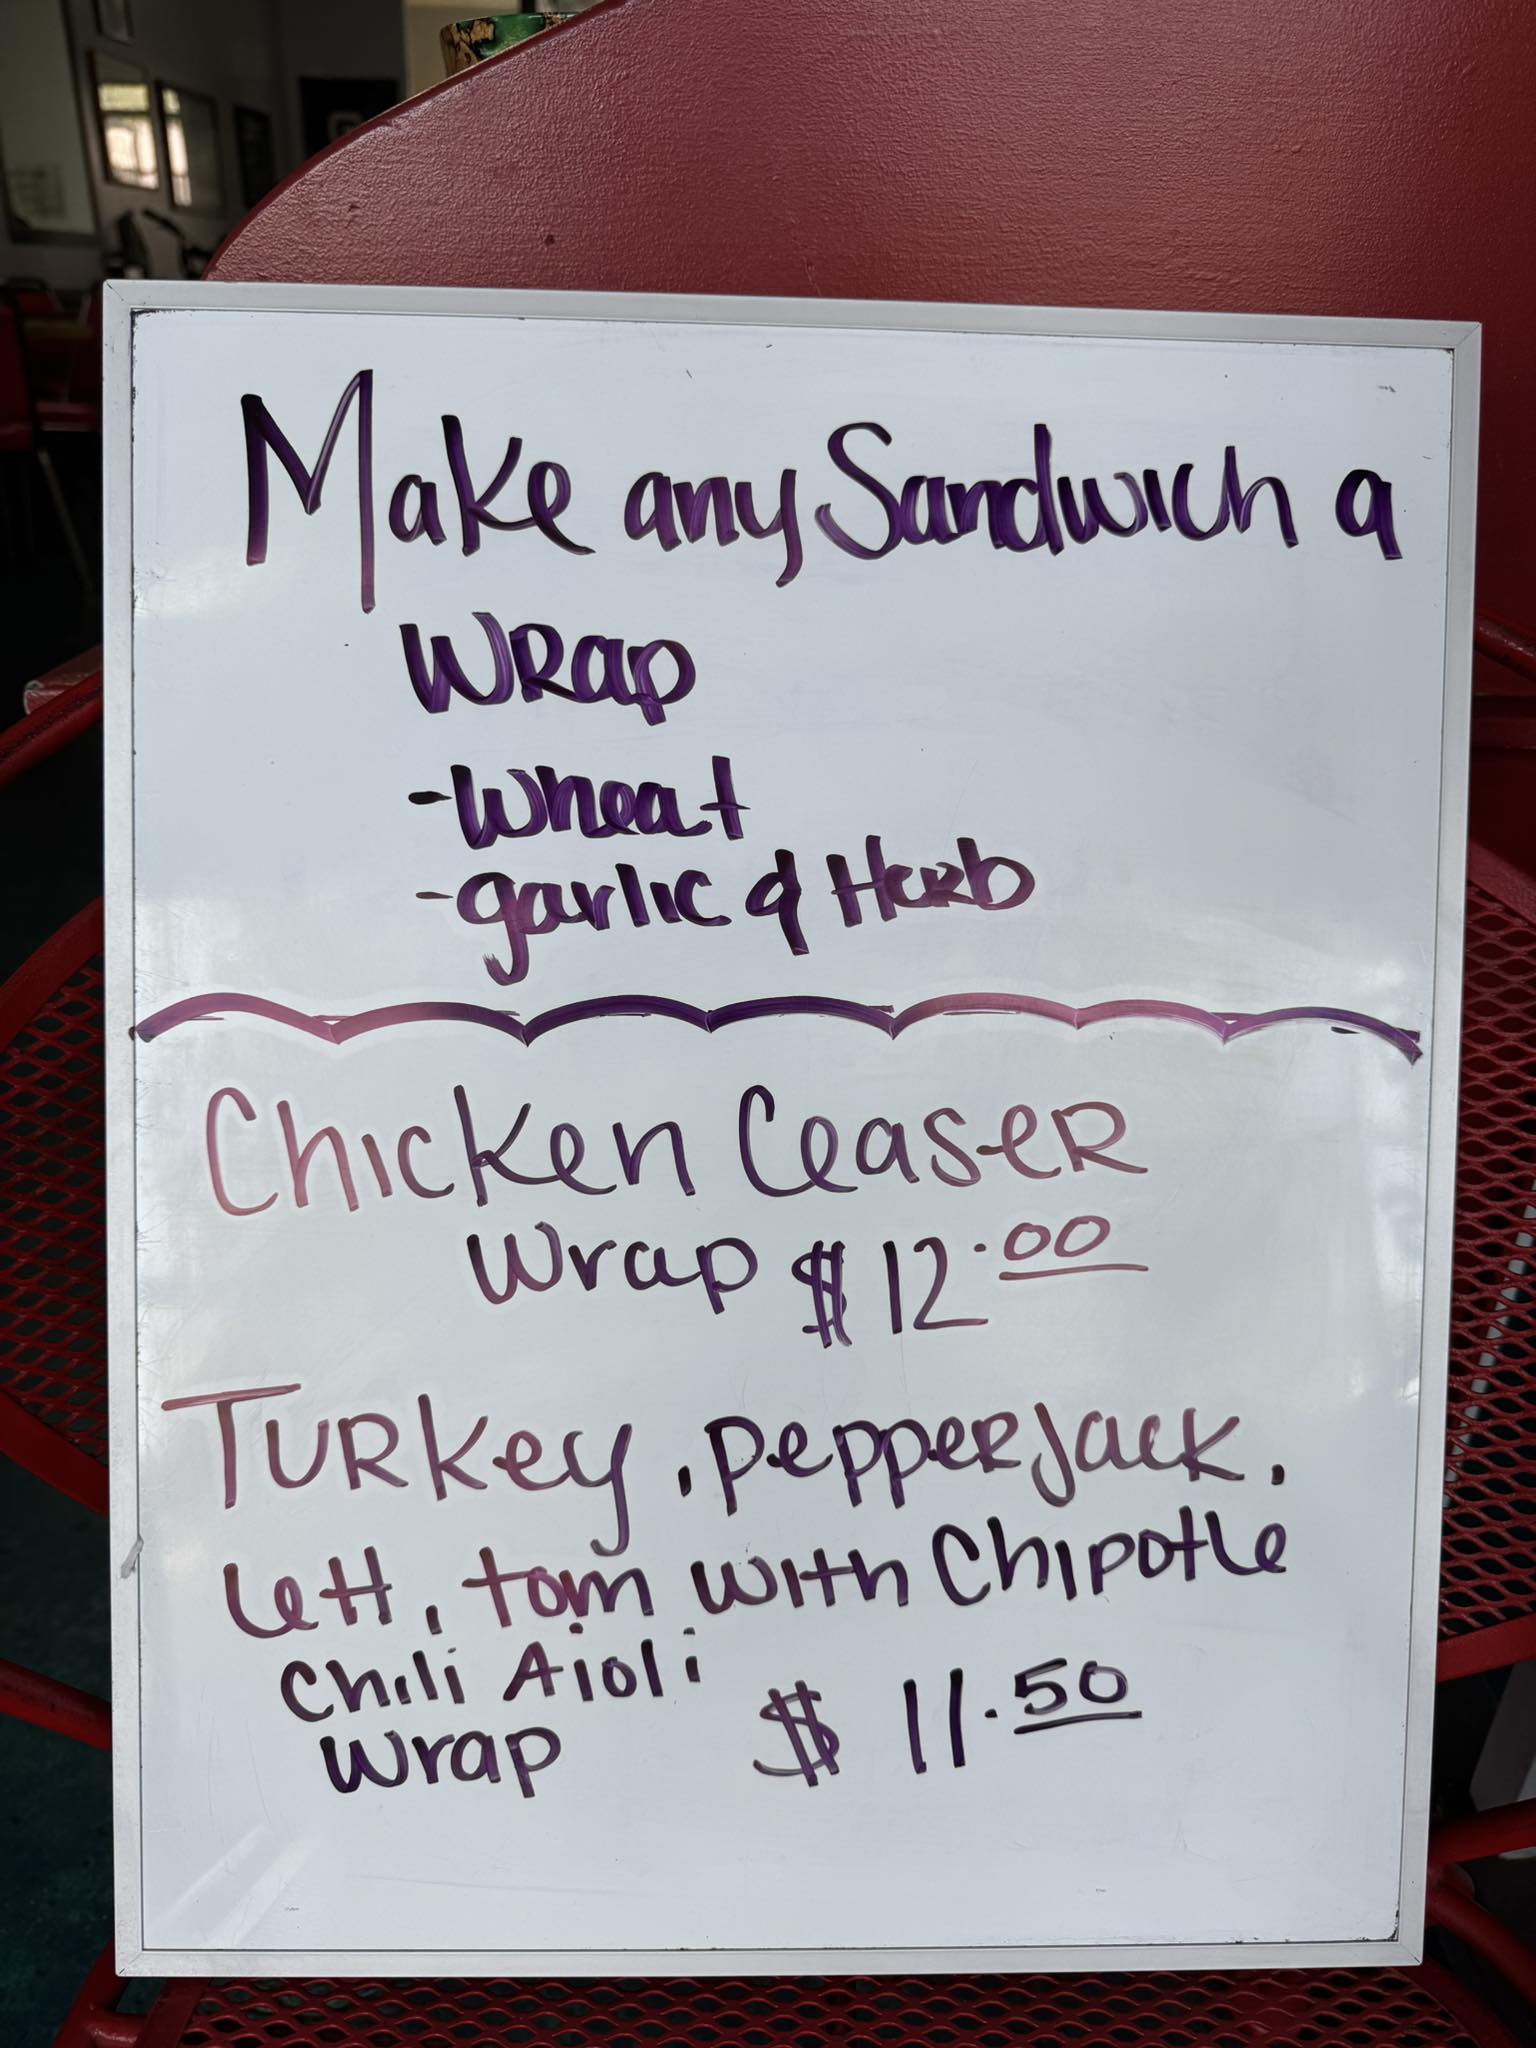 Make any Sandwich a
Wrap
- Wheat
- garlic & Herb
Chicken Ceaser
Wrap $12.00
Turkey, pepperjack,
lett, tom with Chipotle
Chili Aioli
Wrap $11.50